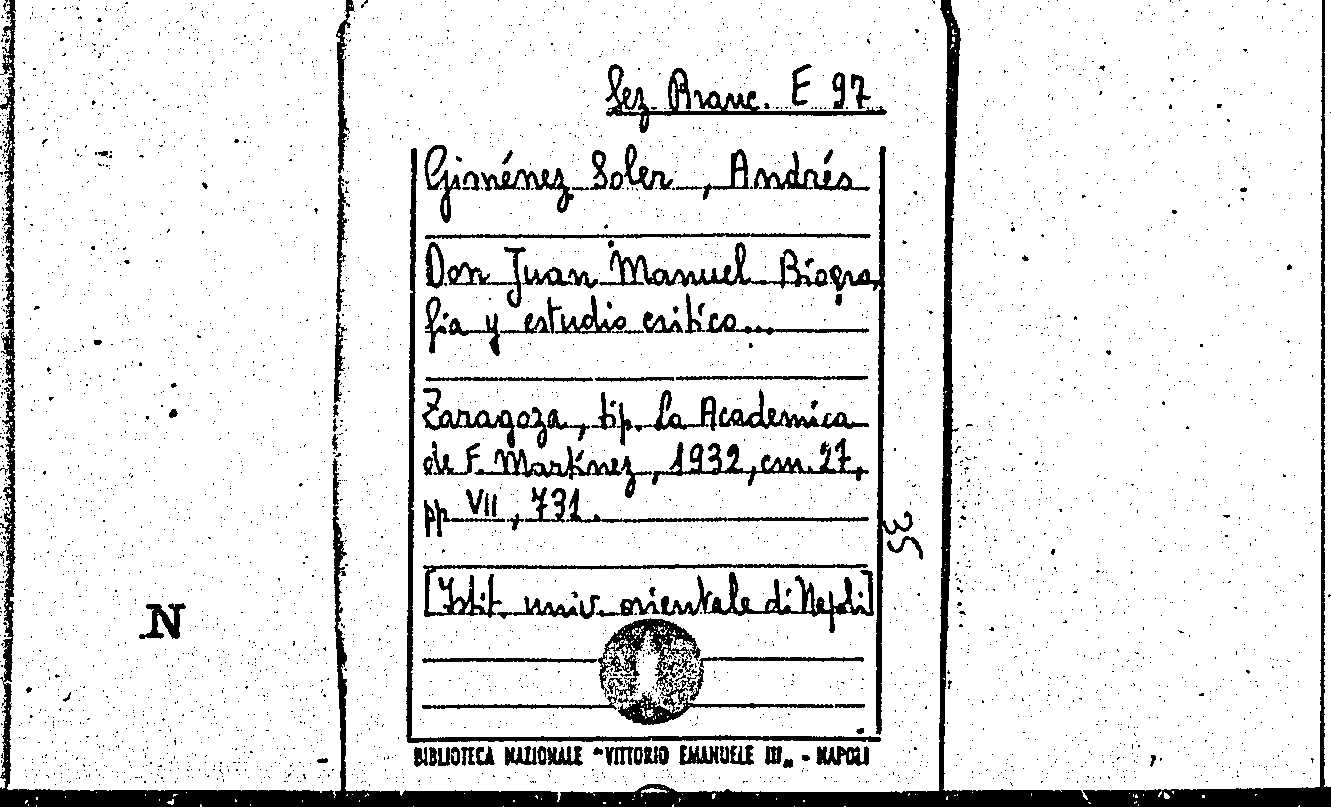 Sez. Branc. E 97
Giménez Soler, Andrés
Don Juan Manuel. Biogra,
fia y estudio critico...
Zaragoza, tip. La Academica
de F. Martínez, 1932, cm. 27,
pp. VII, 731.
35
[Istit. univ. orientale di Napoli]
N
BIBLIOTECA NAZIONALE "VITTORIO EMANUELE III„ - NAPOLI